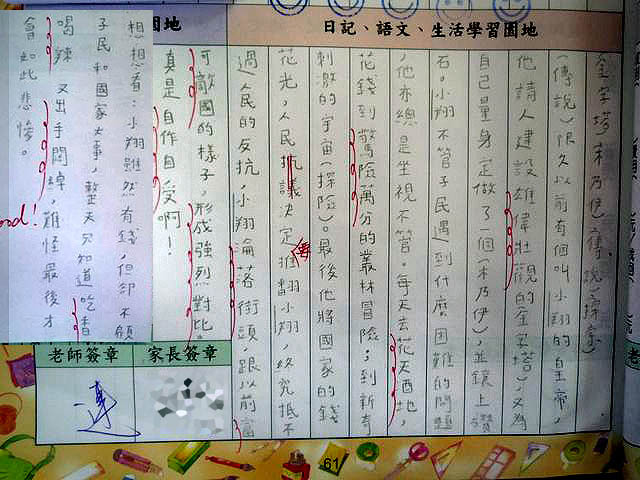 日記、語文、生活學習園地
金字塔 木乃伊(傳說)(探索)
(傳說)很久以前有個叫小翔的皇帝,
他請人建設雄偉壯觀的(金字塔),又為
自己量身定做了一個(木乃伊),並鑲上鑽
石。小翔不管子民遇到什麼困難的問題
,他亦總是坐視不管。每天去花天酒地,
花錢到驚險萬分的叢林冒險;到新奇
刺激的宇宙(探險)。最後他將國家的錢
花光,人民抗議決定要推翻小翔,終究抵不
過人民的反抗,小翔淪落街頭跟以前富
可敵國的樣子,形成強烈對比。
真是自作自受啊!
園地
想想看:小翔雖然有錢,但卻不顧
子民和國家大事,整天只知道吃香
喝辣,又出手闊綽,難怪最後才
會如此悲慘。
家長簽章
老師簽章
61